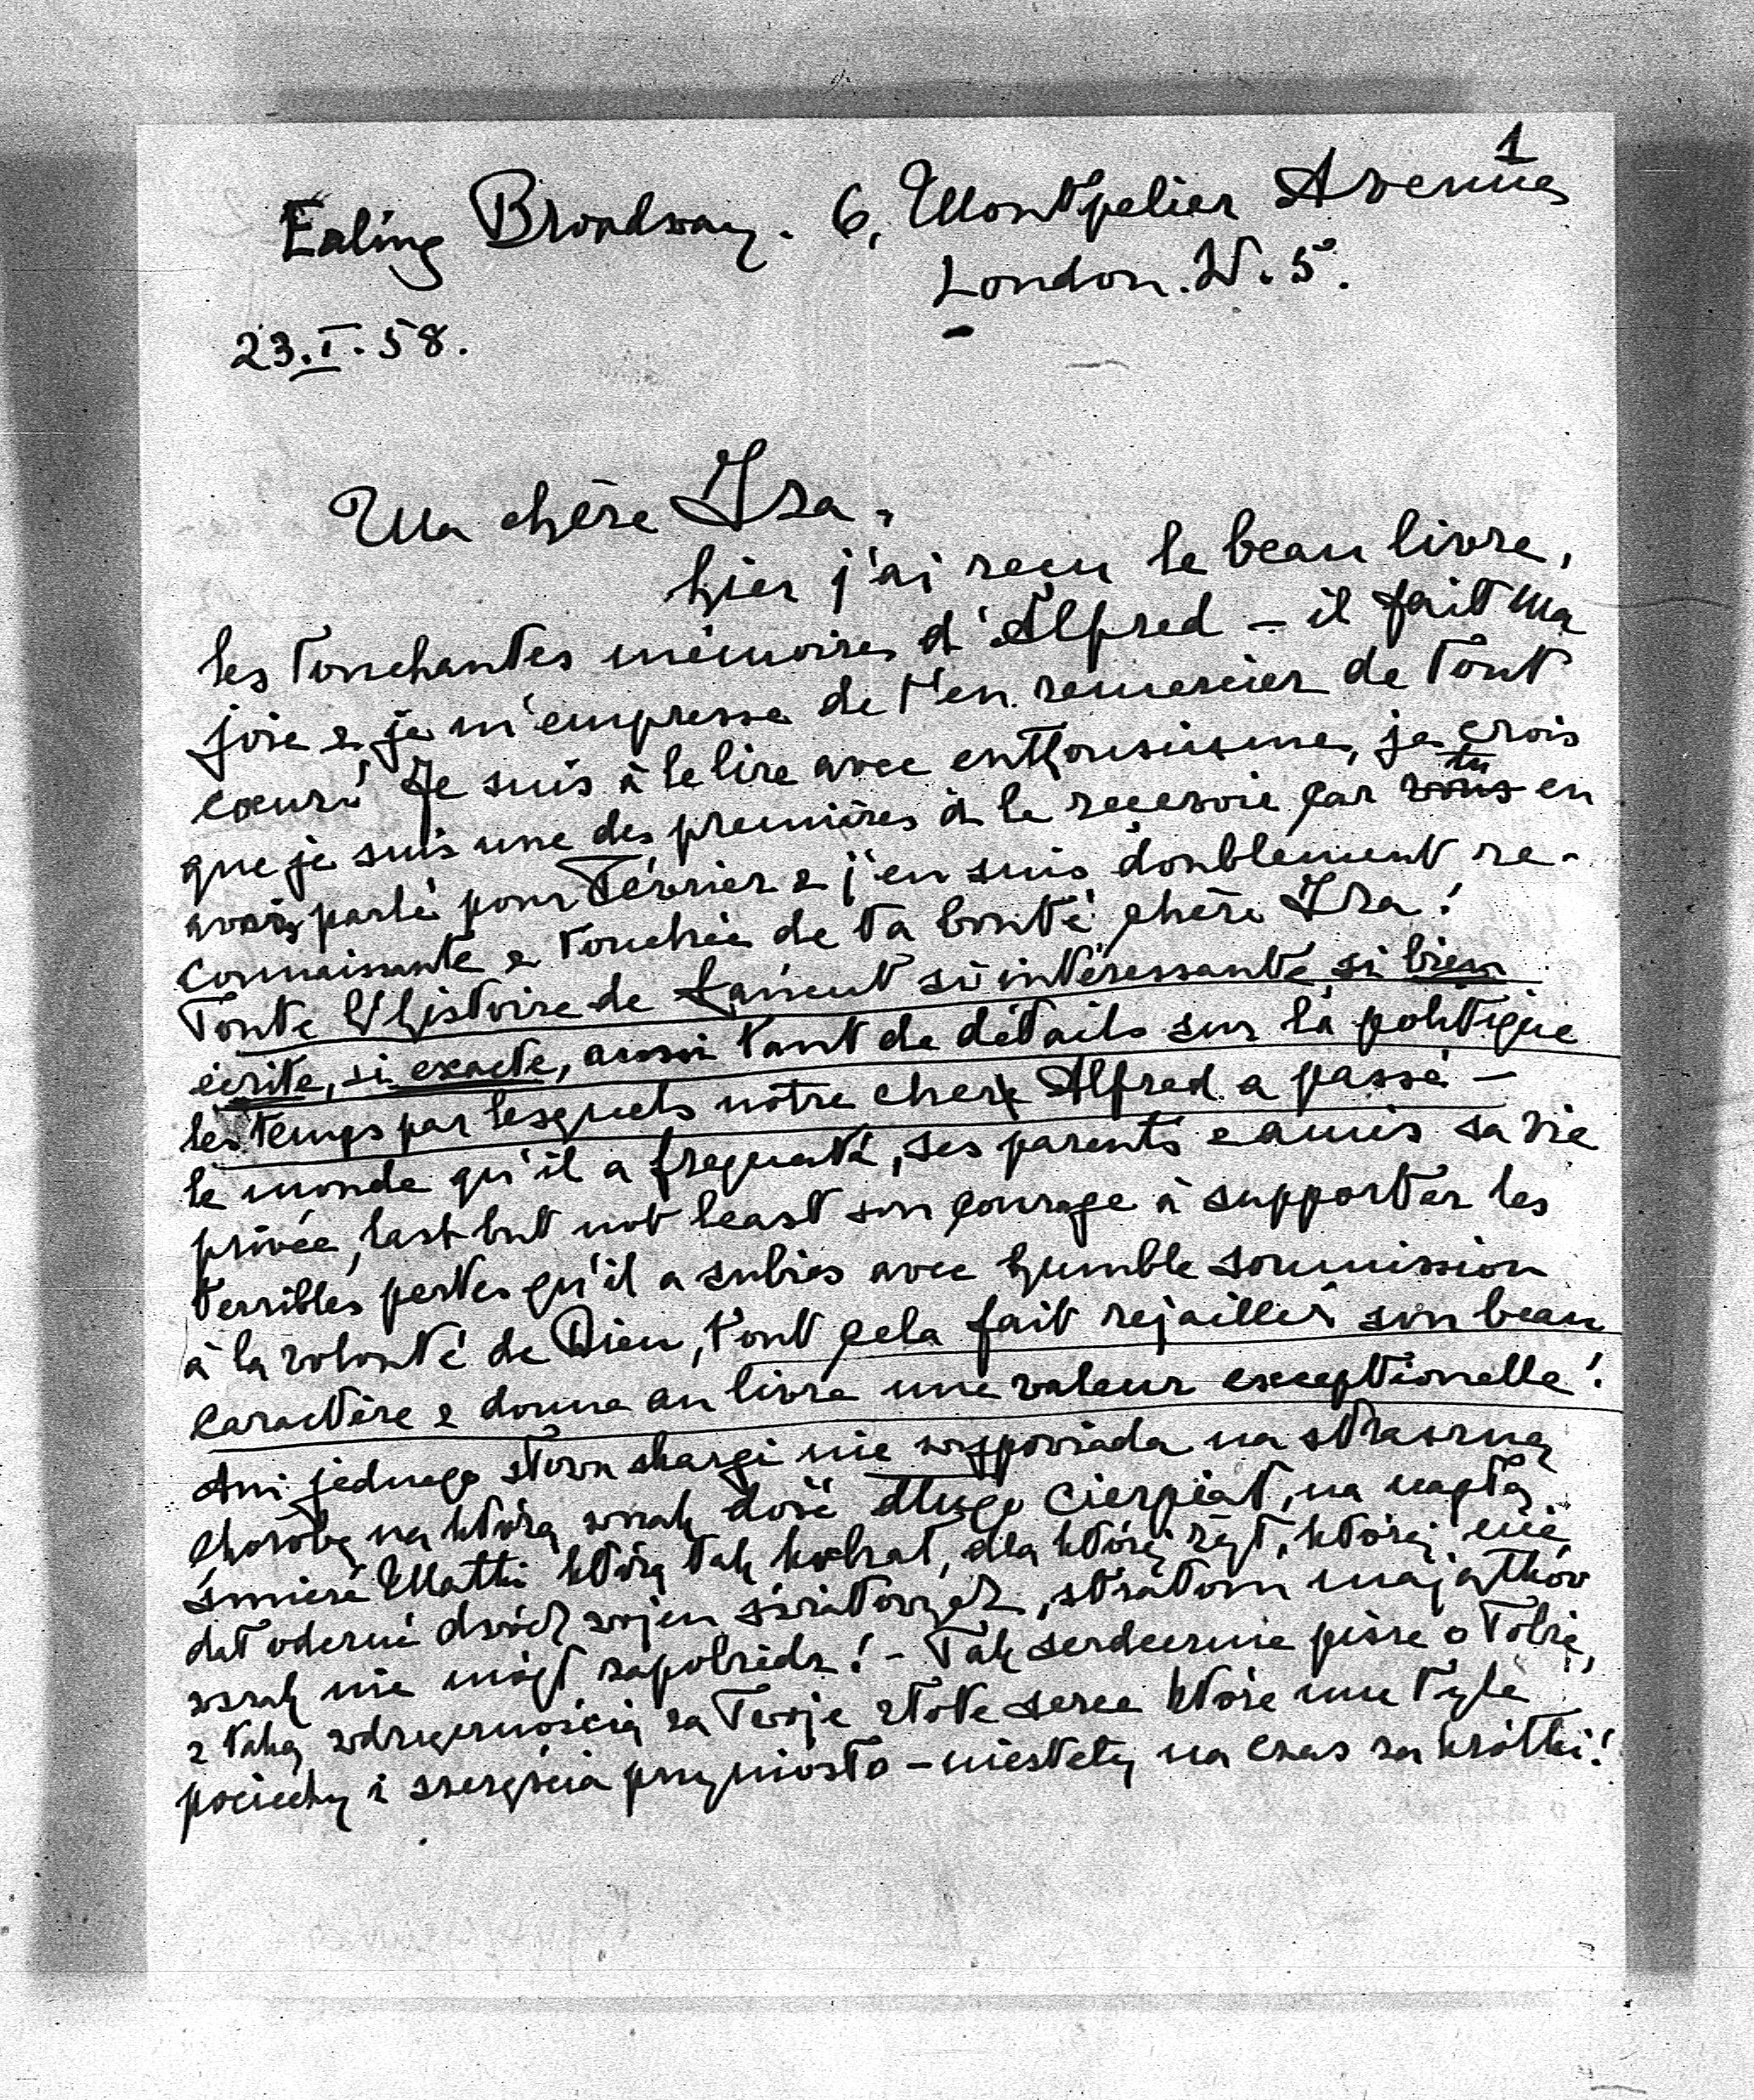 1
Ealing Broadway. 6, Montpelier Avenue
London. W. 5.
23.I.58.
Ma chère Iza,
hier j'ai reçu le beau livre,
les touchantes mémoires d'Alfred – il fait ma
joie & je m'empresse de t'en remercier de tout
cœur! Je suis à le lire avec enthousiasme, je crois
que je suis une des premières à le recevoir car vous tu en
avais parlé pour Février & j'en suis doublement re-
connaissante & touchée de ta bonté chère Iza!
Toute l'histoire de Łańcut si intéressante, si bien
écrite, si exacte, aussi tant de détails sur la politique
les temps par lesquels notre cher Alfred a passé –
le monde qu'il a frequenté, ses parents & amis sa vie
privée, last but not least son courage à supporter les
terribles pertes qu'il a subies avec humble soumission
à la volonté de Dieu, tout cela fait rejaillir son beau
caractère & donne au livre une valeur exceptionelle!
Ani jednego słowa skargi nie wypowiada na straszną
chorobę na którą wszak dość długo cierpiał, na nagłą
śmierć Matki którą tak kochał, dla której żył, której nie
dał oderwć dwóch wojen światowych, stratom majątków
wszak nie mógł zapobiedz! – Tak serdecznie pisze o Tobie,
z taką wdzięcznością za Twoje złote serce które mu tyle
pociechy i szczęścia przyniosło – niestety na czas za krótki!